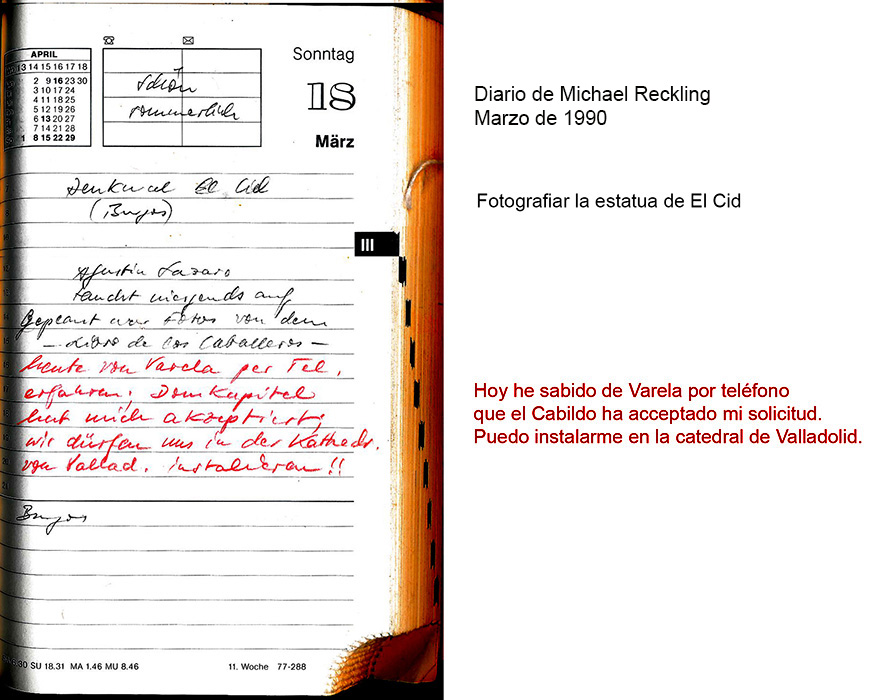 APRIL
13 14 15 16 17 18
2 9 16 23 30
3 10 17 24
4 11 18 25
5 12 19 26
6 13 20 27
7 14 21 28
1 8 15 22 29
schön
sommerlich
Sonntag
18
März
Denkmal El Cid
(Burgos)
III
Agustin Lazaro
taucht nirgends auf
Gepeant war Fotos von dem
– Libro de los Caballeros –
heute von Varela per Tel.
erfahren; Domkapitel
hat mich akzeptiert;
wir dürfen uns in der Kathedr.
von Vallad. installieren!!
Burgos
.30 SU 18.31 MA 1.46 MU 8.46
11. Woche 77-288
Diario de Michael Reckling
Marzo de 1990
Fotografiar la estatua de El Cid
Hoy he sabido de Varela por teléfono
que el Cabildo ha acceptado mi solicitud.
Puedo instalarme en la catedral de Valladolid.